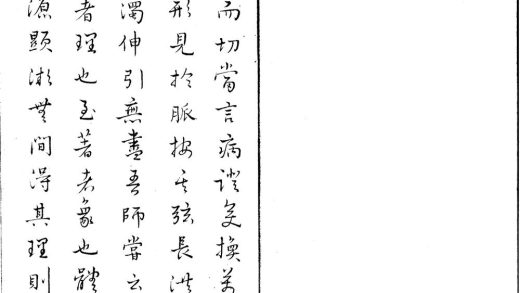 而切當言病證變換萬
形見於脈按其弦長洪
濁伸引無盡吾師嘗云
者理也至著者象也體
源顯微無間得其理則